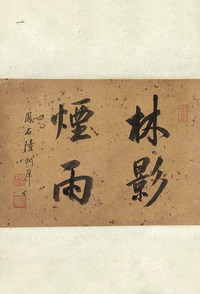 林影
煙雨
鳳石陸潤庠